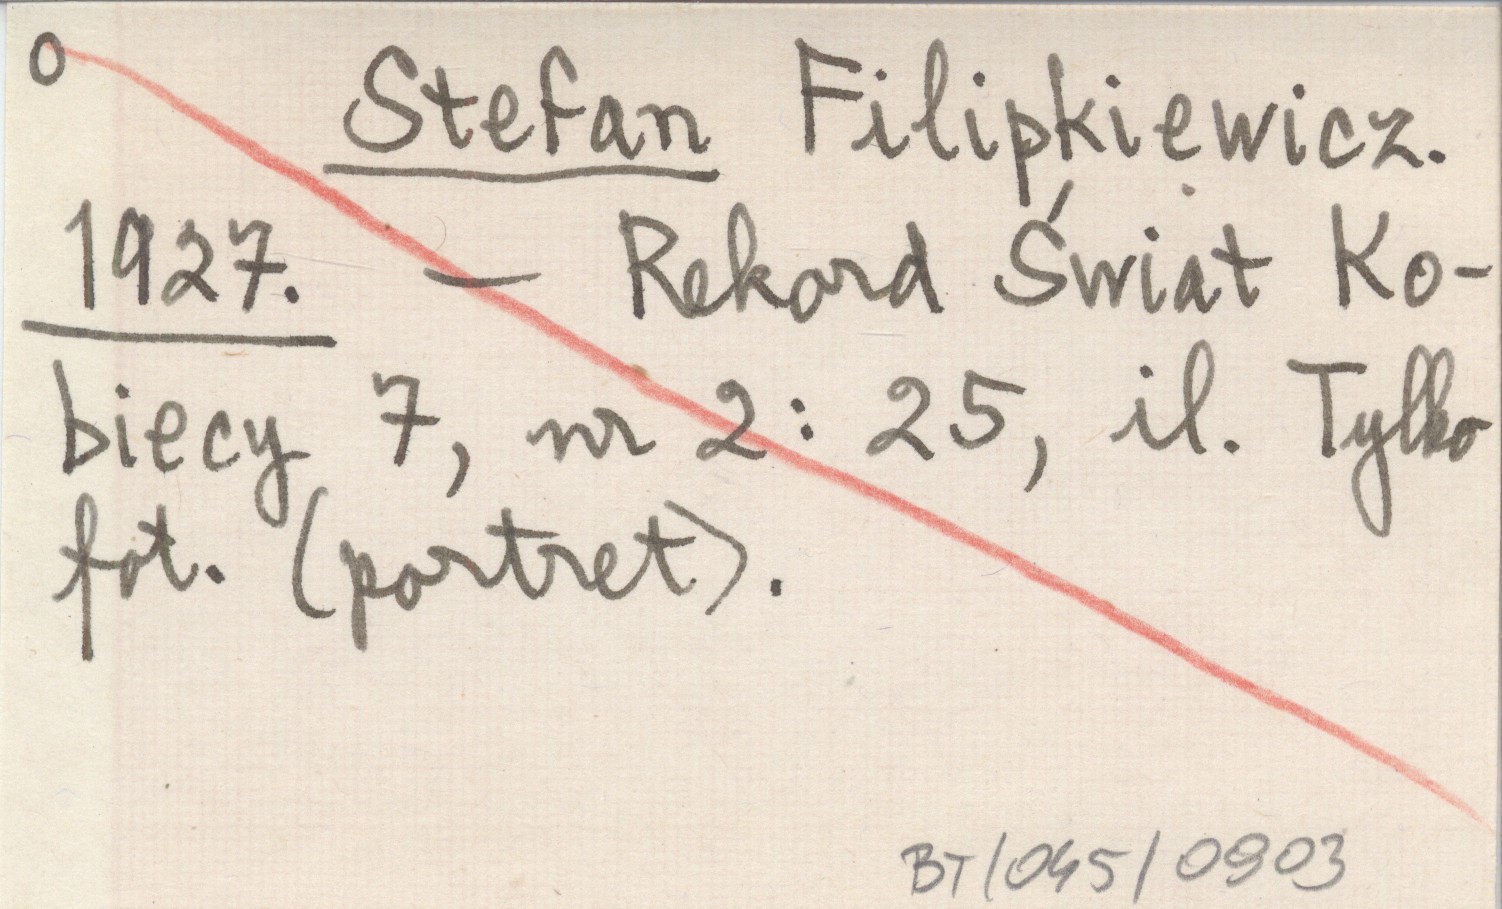 o Stefan Filipkiewicz.
1927. — Rekord Świat Ko-
biecy 7, nr 2: 25, il. Tylko
fot. (portret).
BT/045/0903